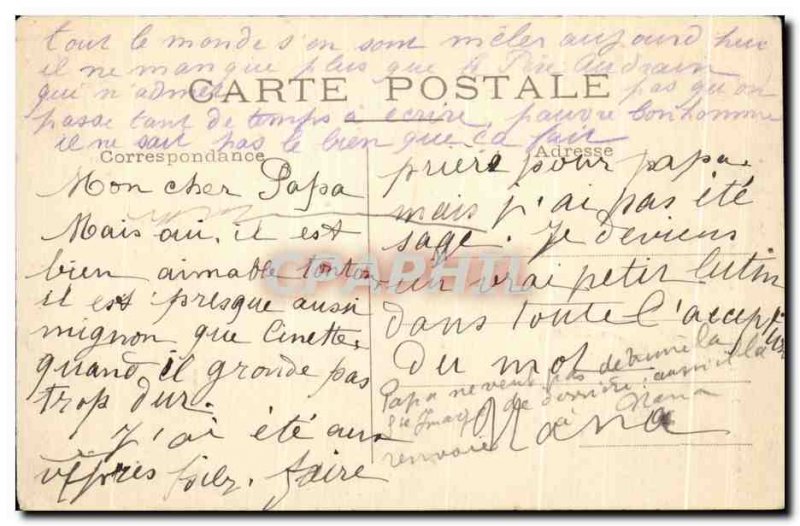 tout le monde s'en sont mêler aujourd hui
il ne manque plus que le Père Audrain
qui n'admet pas qu'on
CARTE POSTALE
passe tant de temps à écrire, pauvre bonhomme
il ne sait pas le bien que ça fait
Correspondance
Mon cher Papa
Mais oui, il est
bien aimable tonton
il est presque aussi
mignon que Linette,
quand il gronde pas
trop dur.
J'ai été aux
vêpres hier. faire
Adresse
prière pour papa.
mais j'ai pas été
sage. Je deviens
un vrai petit lutin
dans toute l'accept
du mot
Papa ne veut pas de la
Ste Image de derrière; aussi il la
renvoie à Nana
Nana
CPAPHIL